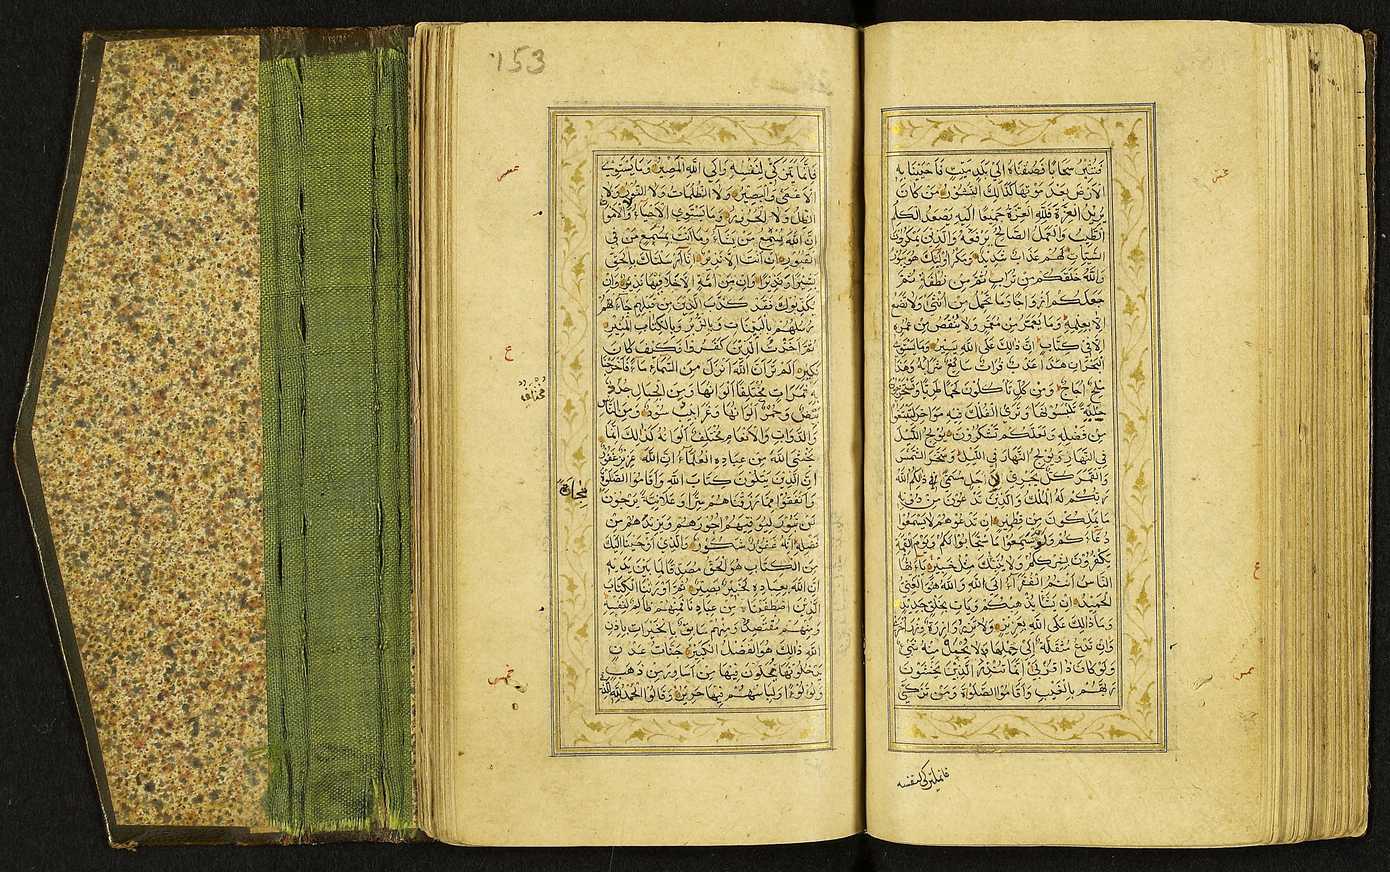 فتثير سحابا فسقناه الى بلد ميت فاحيينا به
الارض بعد موتها كذالك النشور من كان
يريد العزة فلله العزة جميعا اليه يصعد الكلم
الطيب والعمل الصالح يرفعه والذين يمكرون
السيئات لهم عذاب شديد ومكر اولئك هو يبور
والله خلقكم من تراب ثم من نطفة ثم
جعلكم ازواجا وما تحمل من انثى ولا تضع
الا بعلمه وما يعمر من معمر ولا ينقص من عمره
الا في كتاب ان ذالك على الله يسير وما يستوي
البحران هذا عذب فرات سائغ شرابه وهذا
ملح اجاج ومن كل تأكلون لحما طريا وتستخرجون
حلية تلبسونها وترى الفلك فيه مواخر لتبتغوا
من فضله ولعلكم تشكرون يولج الليل
في النهار ويولج النهار في الليل وسخر الشمس
والقمر كل يجري لاجل مسمى ذلكم الله
ربكم له الملك والذين تدعون من دونه
ما يملكون من قطمير ان تدعوهم لا يسمعوا
دعاءكم ولو سمعوا ما استجابوا لكم ويوم القيمة
يكفرون بشرككم ولا ينبئك مثل خبير يا ايها
الناس انتم الفقراء الى الله والله هو الغني
الحميد ان يشأ يذهبكم ويأت بخلق جديد
وما ذالك على الله بعزيز ولا تزر وازرة وزر اخرى
وان تدع مثقلة الى حملها لا يحمل منه شيء
ولو كان ذا قربى انما تنذر الذين يخشون
ربهم بالغيب واقاموا الصلوة ومن تزكى
ع
خمس
153
فانما يتزكى لنفسه والى الله المصير وما يستوي
الاعمى والبصير ولا الظلمات ولا النور ولا
الظل ولا الحرور وما يستوي الاحياء ولا الاموات
ان الله يسمع من يشاء وما انت بمسمع من في
القبور ان انت الا نذير انا ارسلناك بالحق
بشيرا ونذيرا وان من امة الا خلا فيها نذير وان
يكذبوك فقد كذب الذين من قبلهم جاءتهم
رسلهم بالبينات وبالزبر وبالكتاب المنير
ثم اخذت الذين كفروا فكيف كان
نكير الم تر ان الله انزل من السماء ماء فاخرجنا
به ثمرات مختلفا الوانها ومن الجبال جدد
بيض وحمر الوانها وغرابيب سود ومن الناس
والدواب والانعام مختلف الوانه كذالك انما
يخشى الله من عباده العلماء ان الله عزيز غفور
ان الذين يتلون كتاب الله واقاموا الصلوة
وانفقوا مما رزقناهم سرا وعلانية يرجون
لن تبور ليوفيهم اجورهم ويزيدهم من
فضله انه غفور شكور والذي اوحينا اليك
من الكتاب هو الحق مصدقا لما بين يديه
ان الله بعباده لخبير بصير ثم اورثنا الكتاب
الذين اصطفينا من عبادنا فمنهم ظالم لنفسه
ومنهم مقتصد ومنهم سابق بالخيرات باذن
الله ذالك هو الفضل الكبير جنات عدن
يدخلونها يحلون فيها من اساور من ذهب
ولؤلؤا ولباسهم فيها حرير وقالوا الحمد لله الذي
تجارة
ع
خمس